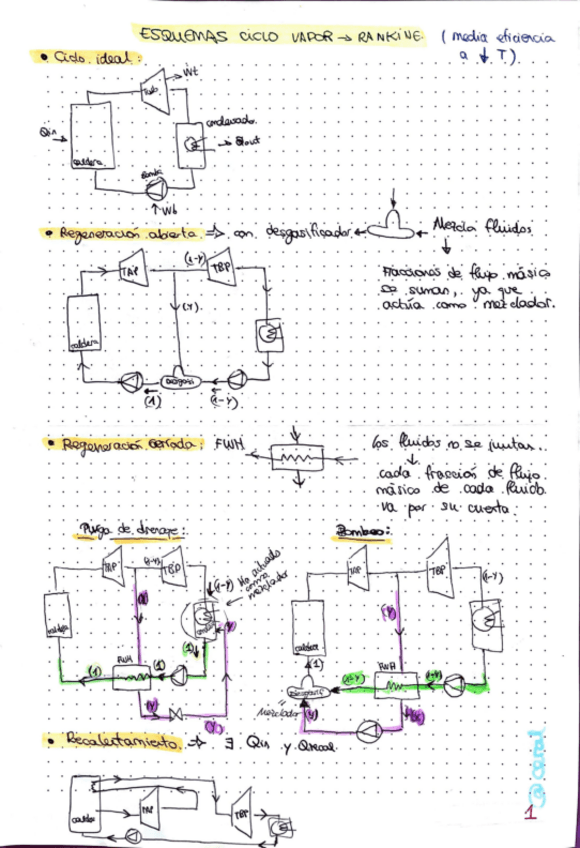 ESQUEMAS CICLO VAPOR → RANKINE (media eficiencia
a ↓ T)
• Ciclo ideal:
Wt
Turb
Qin
caldera
condensador
Qout
Bomba
Wb
• Regeneración abierta ⇒ con desgasificador
Mezcla fluidos
Fracciones de flujo másico
se suman, ya que
actúa como mezclador.
TAP
(1-Y)
TBP
(Y)
caldera
Desgasi
(1)
(1-Y)
• Regeneración cerrada: FWH
Los fluidos no se juntan
cada fracción de flujo
másico de cada fluido
va por su cuenta.
Purga de drenaje:
TAP
(1-Y)
TBP
(1-Y)
mezclador
(Y)
(Y)
caldera
(1)
(1)
FWH
(1)
(Y)
(Y)
Bombeo:
TAP
TBP
(1-Y)
(Y)
caldera
(1)
FWH
(1-Y)
(1-Y)
Mezclador
(Y)
(Y)
• Recalentamiento ⇒ ∃ Qin y Qrecal
caldera
TAP
TBP
1